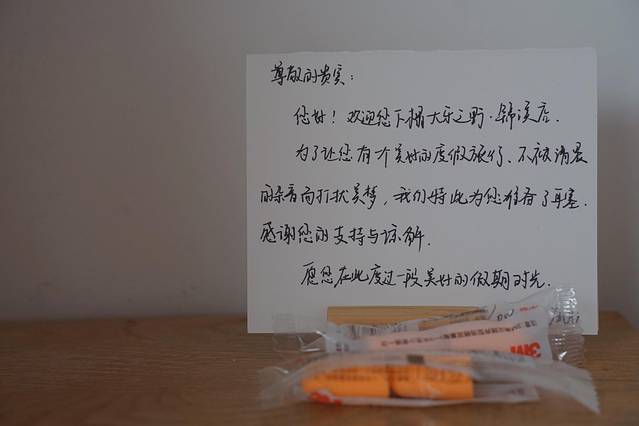 尊敬的贵宾：
您好！欢迎您下榻大乐之野·碧溪店.
为了让您有个美好的度假旅行、不被清晨
的杂音而打扰美梦，我们特此为您准备了耳塞.
感谢您的支持与谅解.
愿您在此度过一段美好的假期时光.
3M